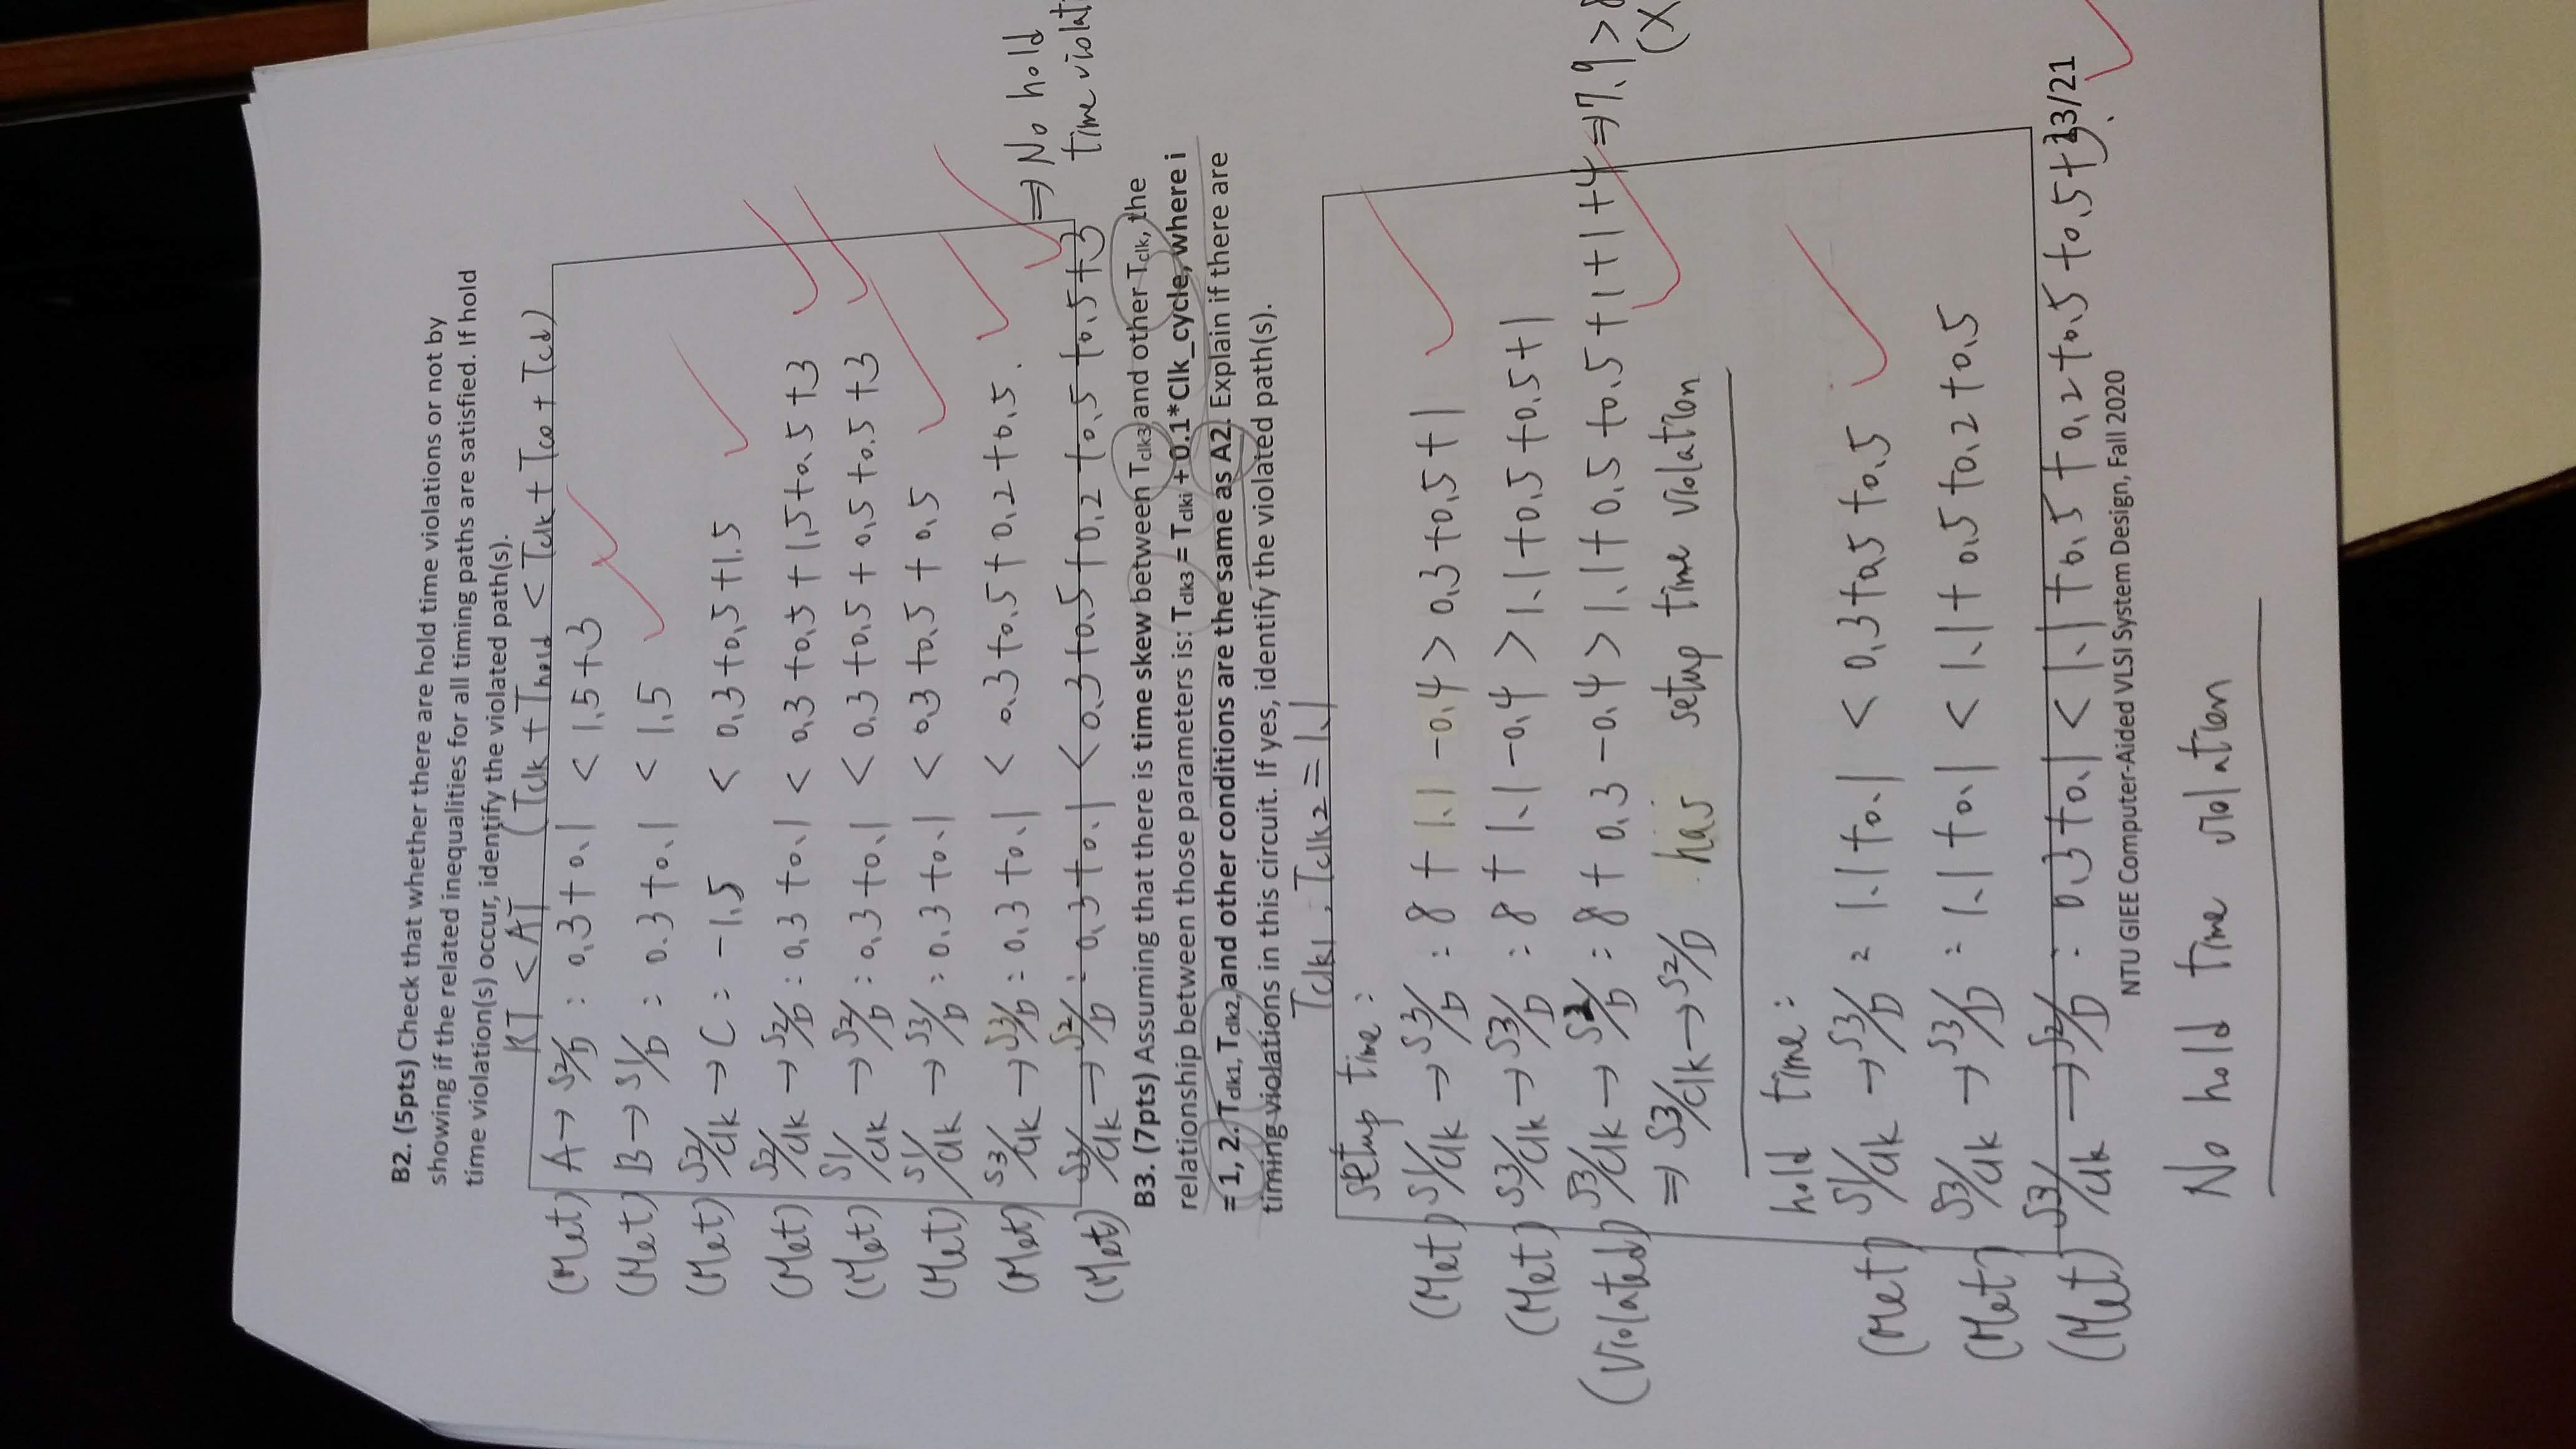 B2. (5pts) Check that whether there are hold time violations or not by
showing if the related inequalities for all timing paths are satisfied. If hold
time violation(s) occur, identify the violated path(s).
RT < AT (Tclk + Thold < Tclk + Tco + Tcd)
(Met) A → S2/D : 0.3 + 0.1 < 1.5 + 3
(Met) B → S1/D : 0.3 + 0.1 < 1.5
(Met) S2/clk → C : -1.5 < 0.3 + 0.5 + 1.5
(Met) S2/clk → S2/D : 0.3 + 0.1 < 0.3 + 0.5 + 1.5 + 0.5 + 3
(Met) S1/clk → S2/D : 0.3 + 0.1 < 0.3 + 0.5 + 0.5 + 0.5 + 3
(Met) S1/clk → S3/D : 0.3 + 0.1 < 0.3 + 0.5 + 0.5
(Met) S3/clk → S3/D : 0.3 + 0.1 < 0.3 + 0.5 + 0.2 + 0.5.
(Met) S3/clk → S2/D : 0.3 + 0.1 < 0.3 + 0.5 + 0.2 + 0.5 + 0.5 + 3
⇒ No hold
time violat
B3. (7pts) Assuming that there is time skew between Tclk3 and other Tclk, the
relationship between those parameters is: Tclk3 = Tclki + 0.1*Clk_cycle, where i
= 1, 2. Tclk1, Tclk2, and other conditions are the same as A2. Explain if there are
timing violations in this circuit. If yes, identify the violated path(s).
Tclk1, Tclk2 = 1.1
setup time :
(Met) S1/clk → S3/D : 8 + 1.1 - 0.4 > 0.3 + 0.5 + 1
(Met) S3/clk → S3/D : 8 + 1.1 - 0.4 > 1.1 + 0.5 + 0.5 + 1
(Violated) S3/clk → S2/D : 8 + 0.3 - 0.4 > 1.1 + 0.5 + 0.5 + 1 + 1 + 4 ⇒ 7.9 > 8
(X
⇒ S3/clk → S2/D has setup time violation
hold time :
(Met) S1/clk → S3/D : 1.1 + 0.1 < 0.3 + 0.5 + 0.5
(Met) S3/clk → S3/D : 1.1 + 0.1 < 1.1 + 0.5 + 0.2 + 0.5
(Met) S3/clk → S2/D : 0.3 + 0.1 < 1.1 + 0.5 + 0.2 + 0.5 + 0.5 + 3.
13/21
NTU GIEE Computer-Aided VLSI System Design, Fall 2020
No hold time violation